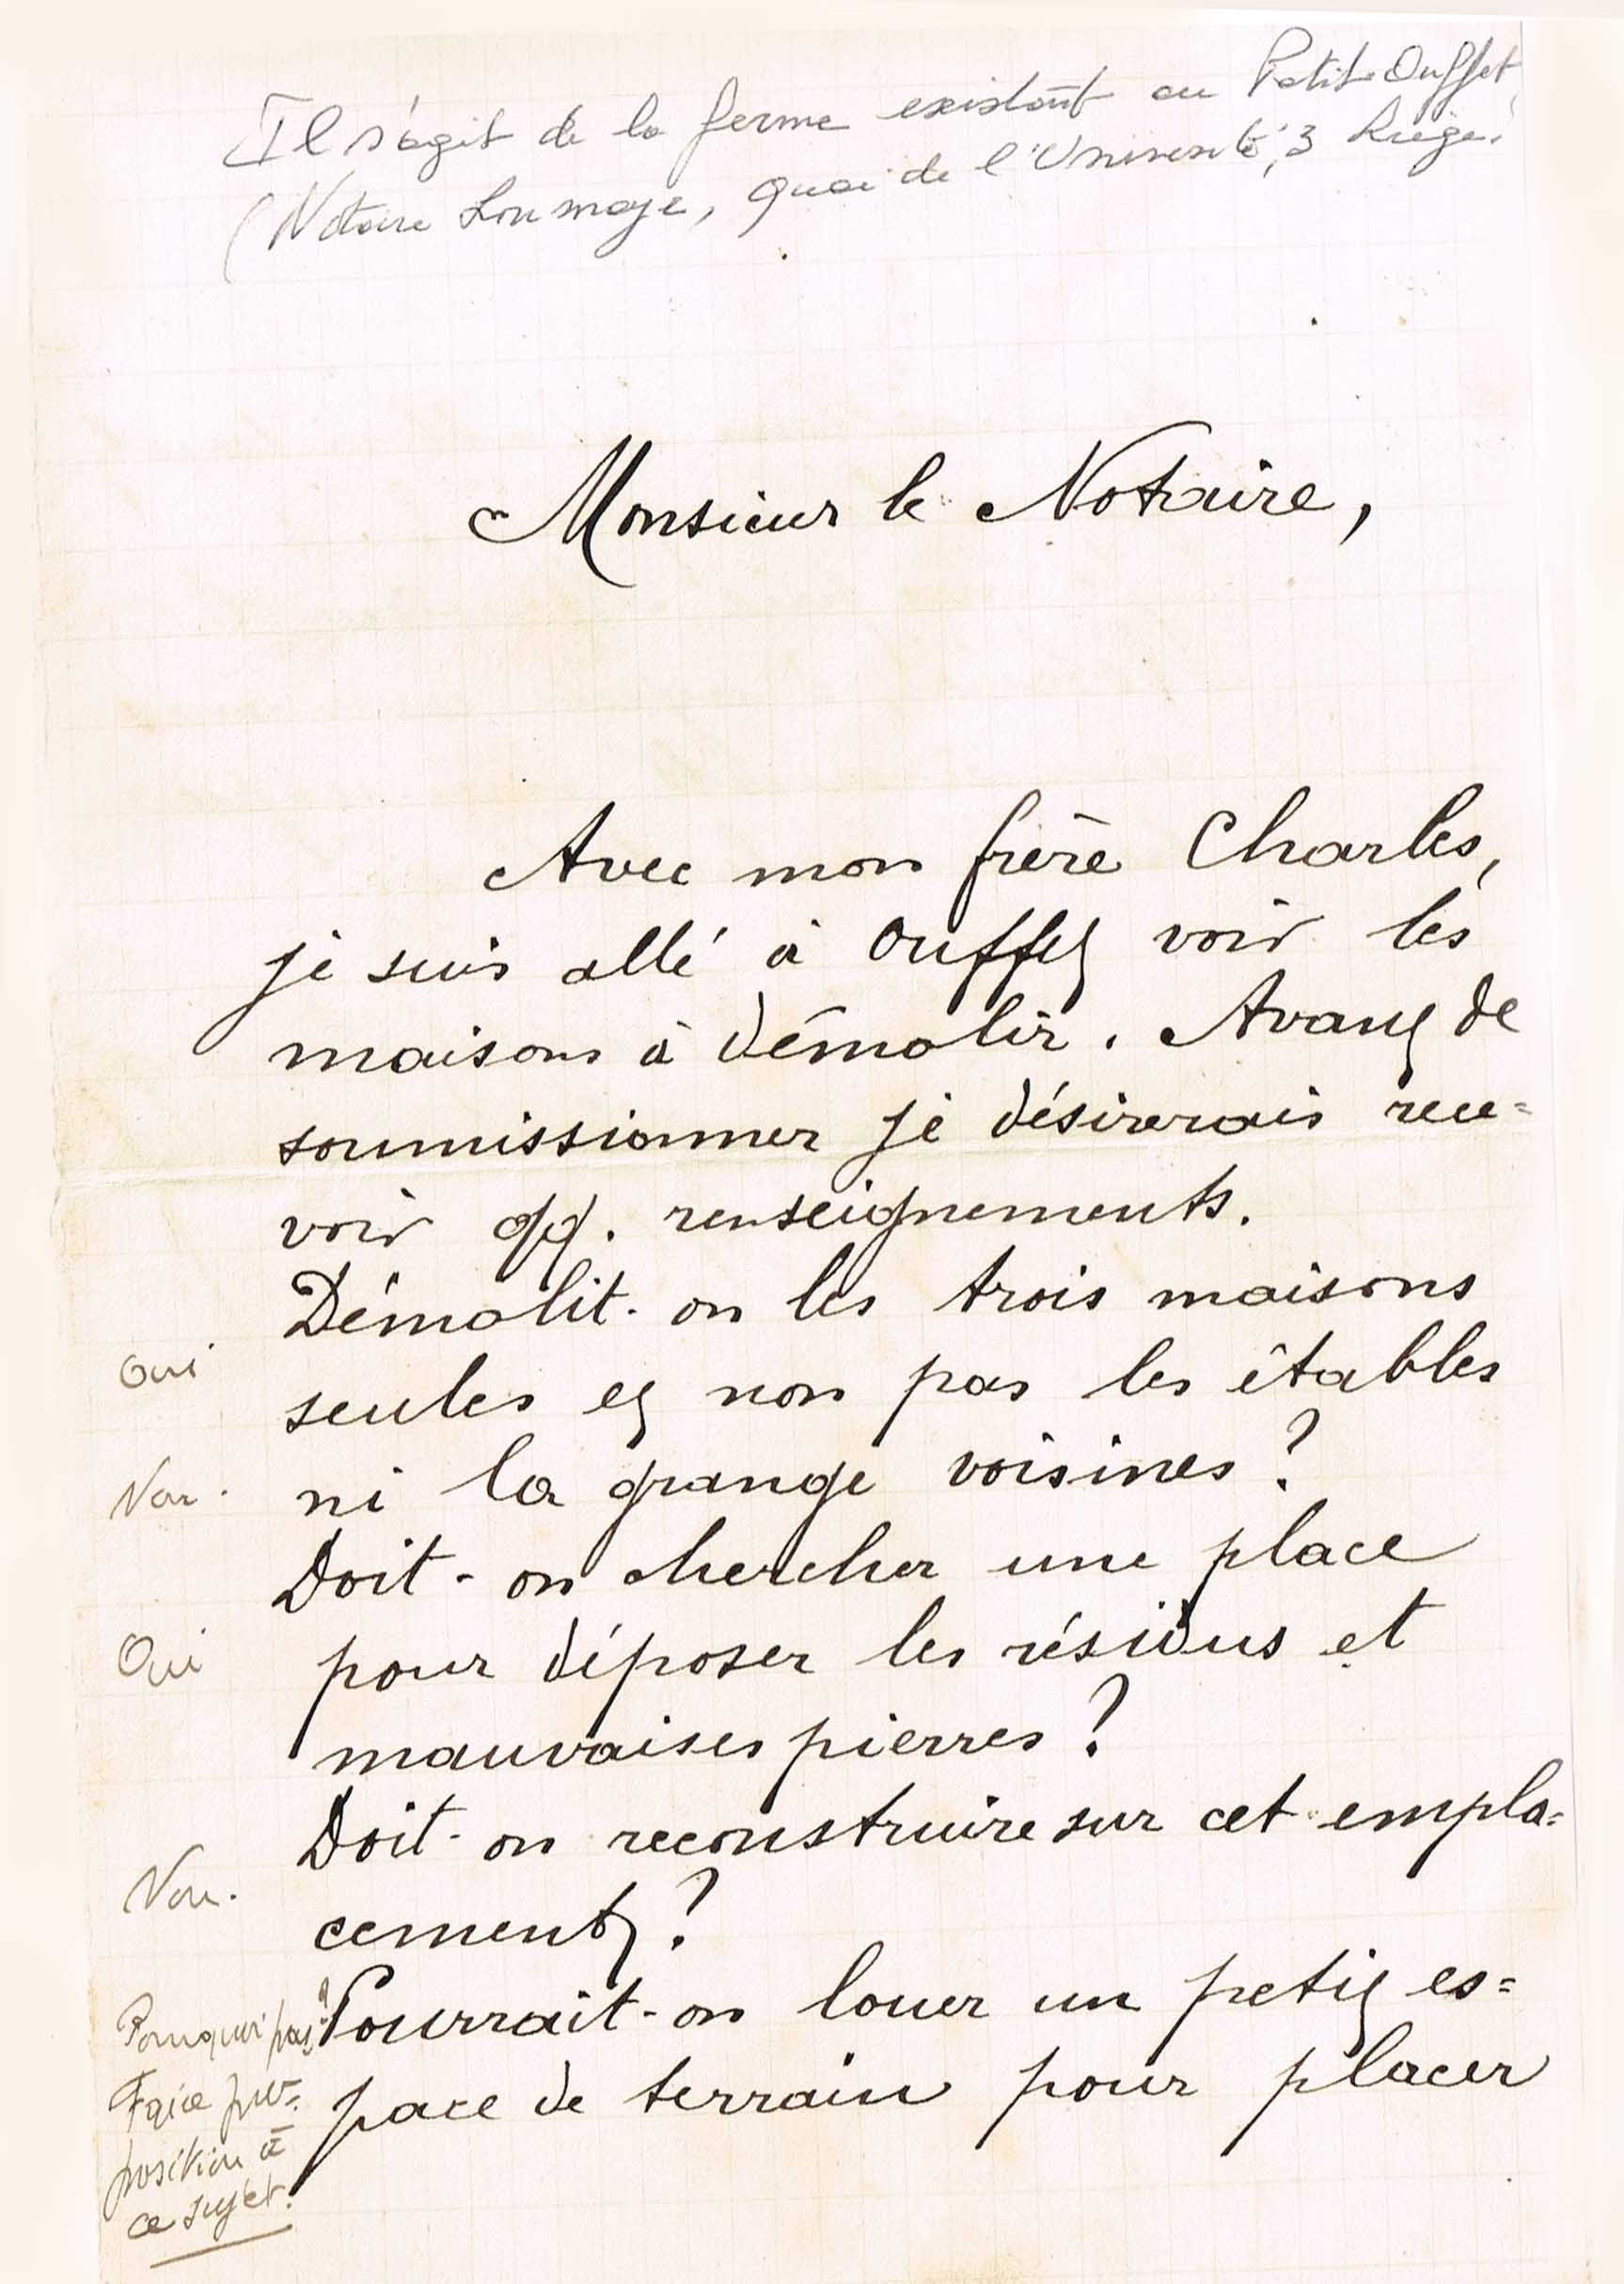 Il s'agit de la ferme existant au Petit-Ouffet
(Notaire Loumaye, Quai de l'Université, 3 Liège.
Monsieur le Notaire,
Avec mon frère Charles,
je suis allé à Ouffet voir les
maisons à démolir. Avant de
soumissionner je désirerais rece=
voir qq. renseignements.
Démolit-on les trois maisons
Oui
seules et non pas les étables
Non.
ni la grange voisines ?
Doit-on chercher une place
Oui
pour déposer les résidus et
mauvaises pierres ?
Doit-on reconstruire sur cet empla=
Non.
cement ?
Pourrait-on louer un petit es=
pace de terrain pour placer
Pourquoi pas ?
Faire pro=
position à
ce sujet.